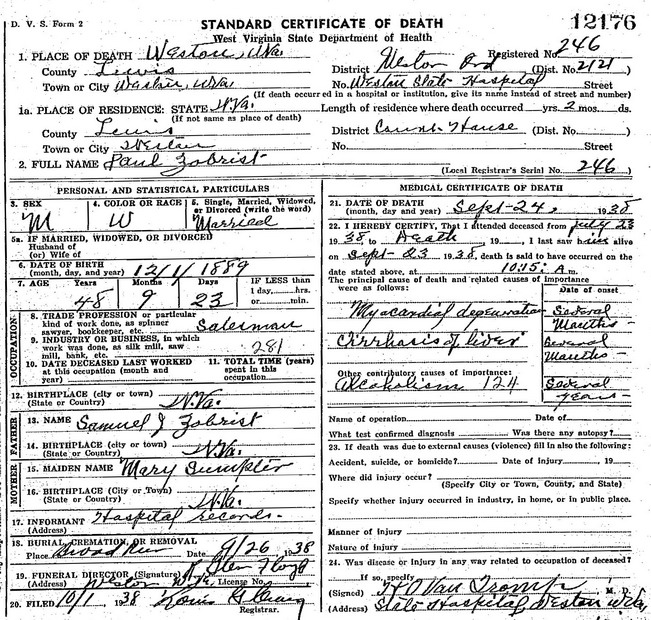 D. V. S. Form 2
STANDARD CERTIFICATE OF DEATH
12176
West Virginia State Department of Health
1. PLACE OF DEATH Weston, W.Va.
Registered No. 246
County Lewis
District Weston (Dist. No. 2121)
Town or City Weston, W.Va.
No. Weston State Hospital Street
(If death occurred in a hospital or institution, give its name instead of street and number)
1a. PLACE OF RESIDENCE: STATE W.Va.
Length of residence where death occurred yrs. 2 mos. ds.
(If not same as place of death)
County Lewis
District Court House (Dist. No. )
Town or City Weston
No. Street
2. FULL NAME Paul Zobrist
(Local Registrar's Serial No. 246
PERSONAL AND STATISTICAL PARTICULARS
3. SEX
M
4. COLOR OR RACE
W
5. Single, Married, Widowed, or Divorced (write the word)
Married
5a. IF MARRIED, WIDOWED, OR DIVORCED
Husband of
(or) Wife of
6. DATE OF BIRTH (month, day, and year) 12/1/1889
7. AGE Years Months Days IF LESS than
1 day, hrs.
or min.
48 9 23
OCCUPATION
8. TRADE PROFESSION or particular
kind of work done, as spinner
sawyer, bookkeeper, etc. Salesman
9. INDUSTRY OR BUSINESS, in which
work was done, as silk mill, saw
mill, bank, etc. 281
10. DATE DECEASED LAST WORKED
at this occupation (month and
year)
11. TOTAL TIME (years)
spent in this
occupation
12. BIRTHPLACE (city or town)
(State or Country) W.Va.
FATHER
13. NAME Samuel J Zobrist
14. BIRTHPLACE (city or town)
(State or Country) W.Va.
MOTHER
15. MAIDEN NAME Mary Sumpter
16. BIRTHPLACE (City or Town)
(State or Country) W.Va.
17. INFORMANT Hospital records
(Address)
18. BURIAL, CREMATION, OR REMOVAL
Place Broad Run Date 9/26 1938
19. FUNERAL DIRECTOR (Signature)
(Address) Weston W.Va. License No.
20. FILED 10/1 1938
Registrar.
MEDICAL CERTIFICATE OF DEATH
21. DATE OF DEATH
(month, day and year) Sept-24, 1938
22. I HEREBY CERTIFY, That I attended deceased from July 23
1938 to Death, 19 , I last saw him alive
on Sept-23 1938, death is said to have occurred on the
date stated above, at 10:15: A m.
The principal cause of death and related causes of importance
were as follows:
Date of onset
Myocardial degeneration Several Months
Cirrhosis of liver Several Months
Other contributory causes of importance:
Alcoholism 124 Several years
Name of operation Date of
What test confirmed diagnosis Was there an autopsy?
23. If death was due to external causes (violence) fill in also the following:
Accident, suicide, or homicide? Date of injury 19
Where did injury occur?
(Specify City or Town, County, and State)
Specify whether injury occurred in industry, in home, or in public place.
Manner of injury
Nature of injury
24. Was disease or injury in any way related to occupation of deceased?
If so, specify
(Signed) H O Van Tromp M. D.
(Address) State Hospital, Weston W.Va.